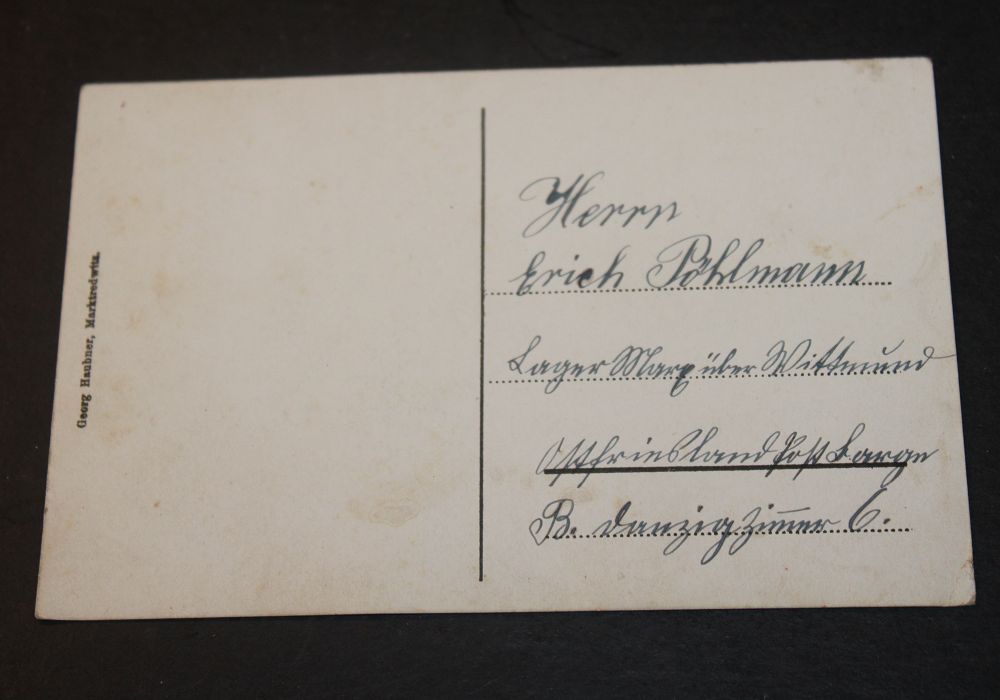 Georg Haubner, Marktredwitz.
Herrn
Erich Pöhlmann
Lager Marx über Wittmund
Ostfriesland Post Barge
B. Danzig Zimmer 6.